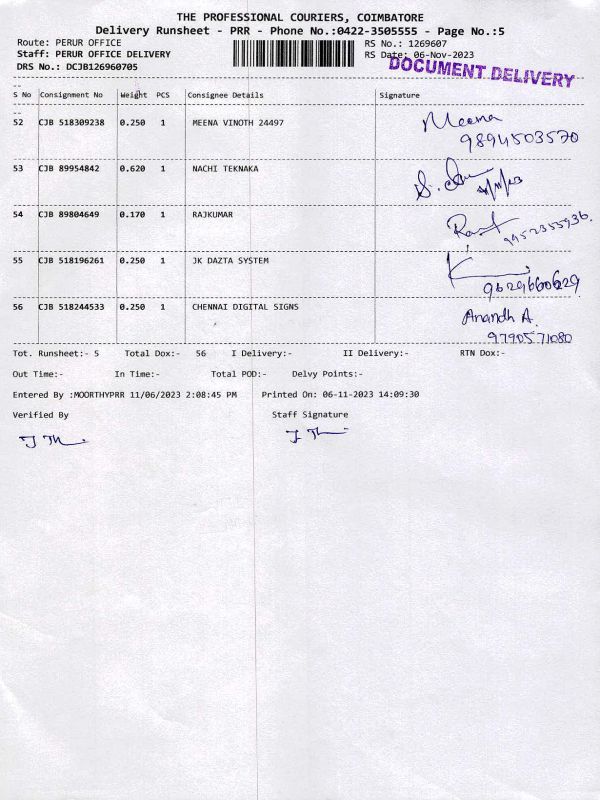 THE PROFESSIONAL COURIERS, COIMBATORE
Delivery Runsheet - PRR - Phone No.:0422-3505555 - Page No.:5
Route: PERUR OFFICE RS No.: 1269607
Staff: PERUR OFFICE DELIVERY RS Date: 06-Nov-2023
DRS No.: DCJB126960705 DOCUMENT DELIVERY
S No Consignment No Weight PCS Consignee Details Signature
52 CJB 518309238 0.250 1 MEENA VINOTH 24497 Meena
9894503570
53 CJB 89954842 0.620 1 NACHI TEKNAKA
54 CJB 89804649 0.170 1 RAJKUMAR
9952355936.
55 CJB 518196261 0.250 1 JK DAZTA SYSTEM
9629660629
56 CJB 518244533 0.250 1 CHENNAI DIGITAL SIGNS Anandh A.
9790571080
Tot. Runsheet:- 5 Total Dox:- 56 I Delivery:- II Delivery:- RTN Dox:-
Out Time:- In Time:- Total POD:- Delvy Points:-
Entered By :MOORTHYPRR 11/06/2023 2:08:45 PM Printed On: 06-11-2023 14:09:30
Verified By Staff Signature